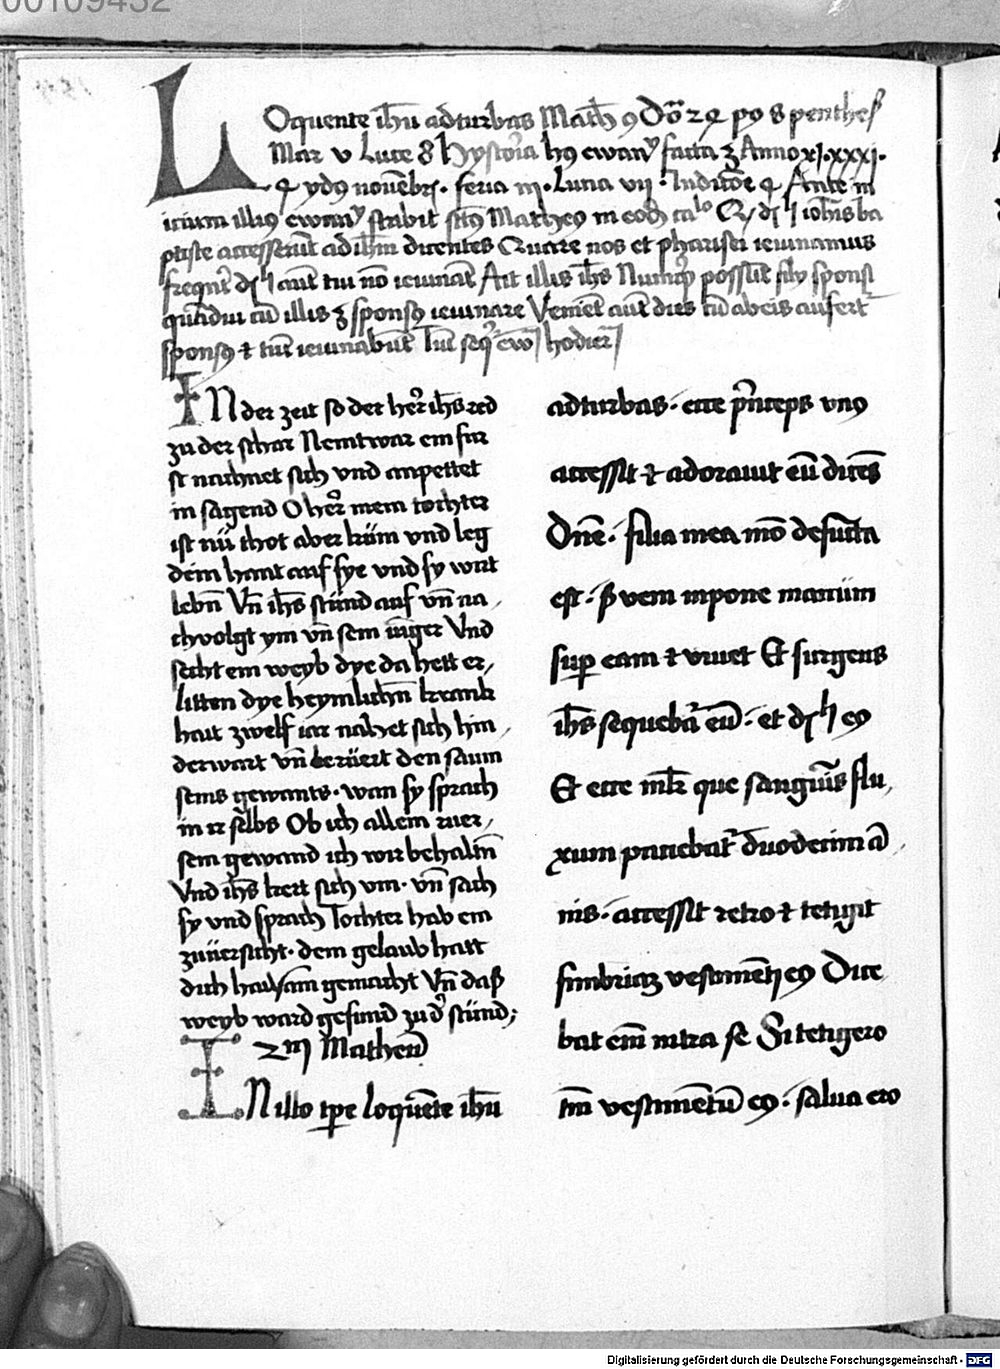 00109432
LOquente ih̄u ad turbas Math̄ 9 Dō̄ 24 po 8 penthe
Mar v Luce 8 hystoria hꝯ ewanͥ facta ꝫ Anno xj.xxxj.
4 ydꝯ novēbrꝭ. feria iij. Luna vij. Indictōe 4 Ante in
icium illiꝯ ewanͥ scribit scꝰ Matheꝯ in eodē ca iohīs ba
ptiste accesserūt ad ih̄m dicentes Quare nos et pharisei ieiunamus
frequēt aūt tui nō ieiunāt Ait illis ih̄s Nunqͥ possūt filij sponsi
quādiu cū illis ꝫ sponsꝯ ieiunare Veniēt aūt dies cū ab eis aufert᷑
sponsꝯ ⁊ tūc ieiunabūt hodier
IN der zeit so der her̄ ih̄s red
zu der schar Nemt war ein für
st nachnet sich vnd anpettet
in sagend O her̄ mein tochter
ist nü thot aber küm vnd leg
dein hant auf sye vnd sy wirt
lebn̄ Vn̄ ih̄s stünd auf vn̄ na
chvolgt ym vn̄ sein iūger Vnd
secht ein weyb dye da hett er/
litten dye heymlichn̄ krank
hait zwelf iar nahet sich hin/
derwart vn̄ berüert den saum
seins gewants. wan sy sprach
in ir selbs Ob ich allein ruer/
sein gewand ich wir behaltn̄
Vnd ih̄s kert sich vm. vn̄ sach
sy vnd sprach Tochter hab ein
züüersicht. dein gelaub hatt
dich haylsam gemacht Vn̄ daß
weyb ward gesund zu d̄ stünd;
2m Matheū
IN illo tp̄e loquēte ih̄u
ad turbas. ecce prīceps vnꝯ
accessit ⁊ adoravit eū dicēs
Dn̄e. filia mea mō defūcta
est. sꝫ veni inpone manum
sup̱ eam ⁊ vivet Et surgens
ih̄s sequebat᷑ eū. et eꝯ
Et ecce ml̄r que sanguīs flu/
xum patiebat᷑ duodecim ā/
nis. accessit retro ⁊ tetigit
fimbriaꝫ vestimēti eꝯ Dice
bat em̄ intra se Si tetigero
tm̄ vestimētū eꝯ. salua ero
Digitalisierung gefördert durch die Deutsche Forschungsgemeinschaft - DFG